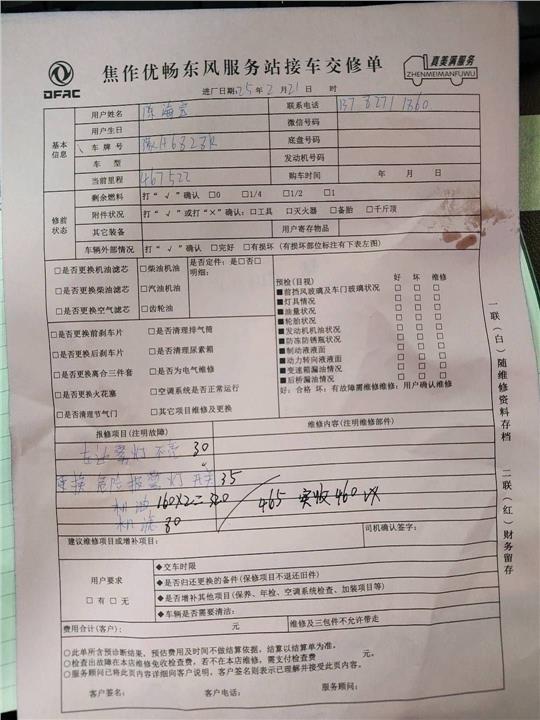 DFAC
焦作优畅东风服务站接车交修单
真美满服务
ZHENMEIMANFUWU
进厂日期:25年2月21日 时
基本信息
用户姓名 陈海宽 联系电话
用户生日 微信号码
车牌号 底盘号码
车型 发动机号码
当前里程 467522 购车时间 年 月 日
修前状态
剩余燃料 打“√”确认 □0 □1/4 □1/2 □1
附件状况 打“√”或打“×”确认:□工具 □灭火器 □备胎 □千斤顶
其它装备 用户寄存物品
车辆外部情况 打“√”确认 □完好 □有损坏 (有损坏部位标注有下表左图)
□是否更换机油滤芯 □柴油机油 是否定件:是□否□
明细:
□是否更换柴油滤芯 □汽油机油
□是否更换空气滤芯 □齿轮油
□是否更换前刹车片 □是否清理排气筒
□是否更换后刹车片 □是否清理尿素箱
□是否更换离合三件套 □是否为电气维修
□是否更换火花塞 □空调系统是否正常运行
□是否清理节气门 □其它项目维修及更换
预检(目视) 好 坏 维修
■前挡风玻璃及车门玻璃状况 □ □ □
■灯具情况 □ □ □
■油量状况 □ □ □
■轮胎状况 □ □ □
■发动机机油状况 □ □ □
■防冻防锈瓶状况 □ □ □
■制动液液面 □ □ □
■动力转向液液面 □ □ □
■变速箱漏油情况 □ □ □
■后桥漏油情况 □ □ □
好:合格 坏:有故障需维修维修:用户确认维修
一联(白)随维修资料存档
二联(红)财务留存
报修项目(注明故障) 维修内容(注明维修部件)
左近雾灯不亮 30
更换危险报警灯开关 35
机油 160×2=320
机滤 80
465 实收460
建议维修项目或增补项目: 司机确认签字:
用户要求
□有□无
◆交车时限
◆是否归还更换的备件(保修项目不退还旧件)
◆是否增补其他项目(保养、年检、空调系统检查、加装项目等)
◆车辆是否需要清洁:
费用合计(客户): 元 维修及三包件不允许带走
○此单所含预诊断结果,预估费用及时间不做结算依据,结算以结算单为准。
○检查出故障在本店维修免收检查费,若不在本店维修,需支付检查费 元。
○服务顾问已将此页内容详细向客户说明,客户签名则表示已理解并接受此页内容。
客户签名: 客户电话: 服务顾问: